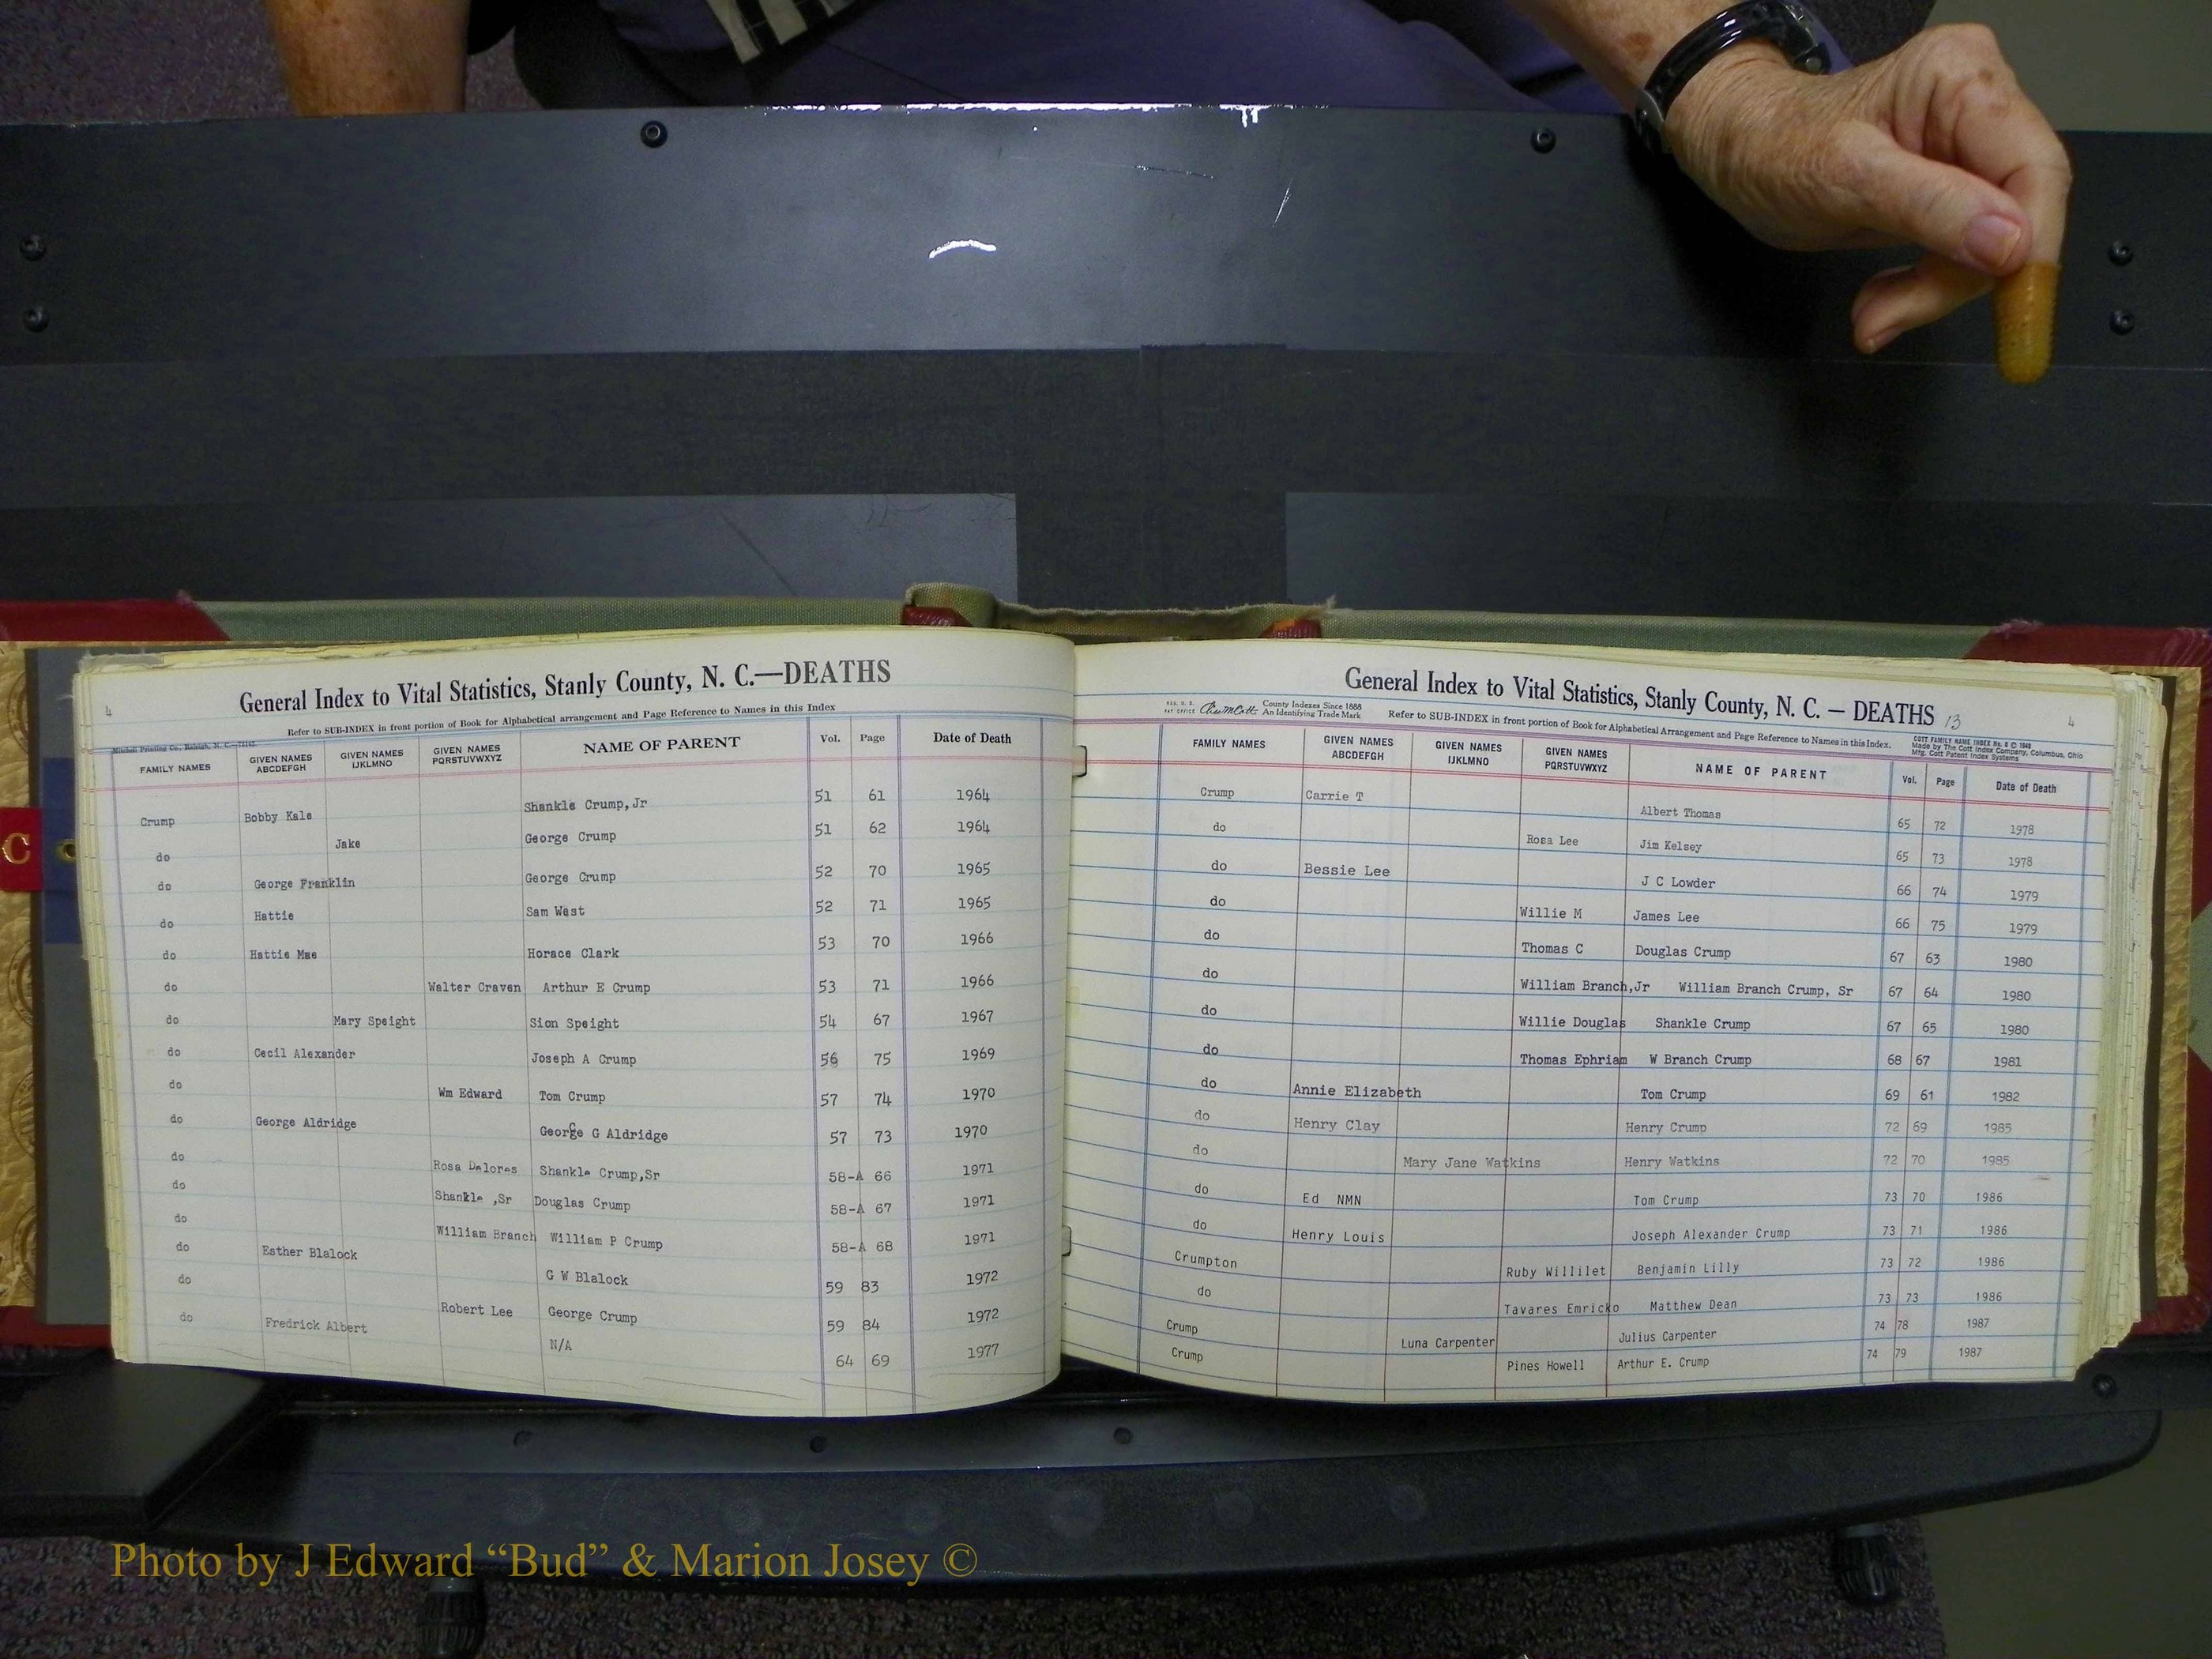 4
General Index to Vital Statistics, Stanly County, N. C.—DEATHS
Refer to SUB-INDEX in front portion of Book for Alphabetical arrangement and Page Reference to Names in this Index
Mitchell Printing Co., Raleigh, N. C.
FAMILY NAMES GIVEN NAMES ABCDEFGH GIVEN NAMES IJKLMNO GIVEN NAMES PQRSTUVWXYZ NAME OF PARENT Vol. Page Date of Death
Crump Bobby Kale Shankle Crump,Jr 51 61 1964
do Jake George Crump 51 62 1964
do George Franklin George Crump 52 70 1965
do Hattie Sam West 52 71 1965
do Hattie Mae Horace Clark 53 70 1966
do Walter Craven Arthur E Crump 53 71 1966
do Mary Speight Sion Speight 54 67 1967
do Cecil Alexander Joseph A Crump 56 75 1969
do Wm Edward Tom Crump 57 74 1970
do George Aldridge George G Aldridge 57 73 1970
do Rosa Delores Shankle Crump,Sr 58-A 66 1971
do Shankle ,Sr Douglas Crump 58-A 67 1971
do William Branch William P Crump 58-A 68 1971
do Esther Blalock G W Blalock 59 83 1972
do Robert Lee George Crump 59 84 1972
do Fredrick Albert N/A 64 69 1977
General Index to Vital Statistics, Stanly County, N. C. — DEATHS 13
4
REG. U. S. PAT OFFICE County Indexes Since 1888 An Identifying Trade Mark Refer to SUB-INDEX in front portion of Book for Alphabetical Arrangement and Page Reference to Names in this Index.
COTT FAMILY NAME INDEX No. 8 © 1949
Made by The Cott Index Company, Columbus, Ohio
Mfg. Cott Patent Index Systems
FAMILY NAMES GIVEN NAMES ABCDEFGH GIVEN NAMES IJKLMNO GIVEN NAMES PQRSTUVWXYZ NAME OF PARENT Vol. Page Date of Death
Crump Carrie T Albert Thomas 65 72 1978
do Rosa Lee Jim Kelsey 65 73 1978
do Bessie Lee J C Lowder 66 74 1979
do Willie M James Lee 66 75 1979
do Thomas C Douglas Crump 67 63 1980
do William Branch,Jr William Branch Crump, Sr 67 64 1980
do Willie Douglas Shankle Crump 67 65 1980
do Thomas Ephriam W Branch Crump 68 67 1981
do Annie Elizabeth Tom Crump 69 61 1982
do Henry Clay Henry Crump 72 69 1985
do Mary Jane Watkins Henry Watkins 72 70 1985
do Ed NMN Tom Crump 73 70 1986
do Henry Louis Joseph Alexander Crump 73 71 1986
Crumpton Ruby Willilet Benjamin Lilly 73 72 1986
do Tavares Emricko Matthew Dean 73 73 1986
Crump Luna Carpenter Julius Carpenter 74 78 1987
Crump Pines Howell Arthur E. Crump 74 79 1987
C
Photo by J Edward “Bud” & Marion Josey ©